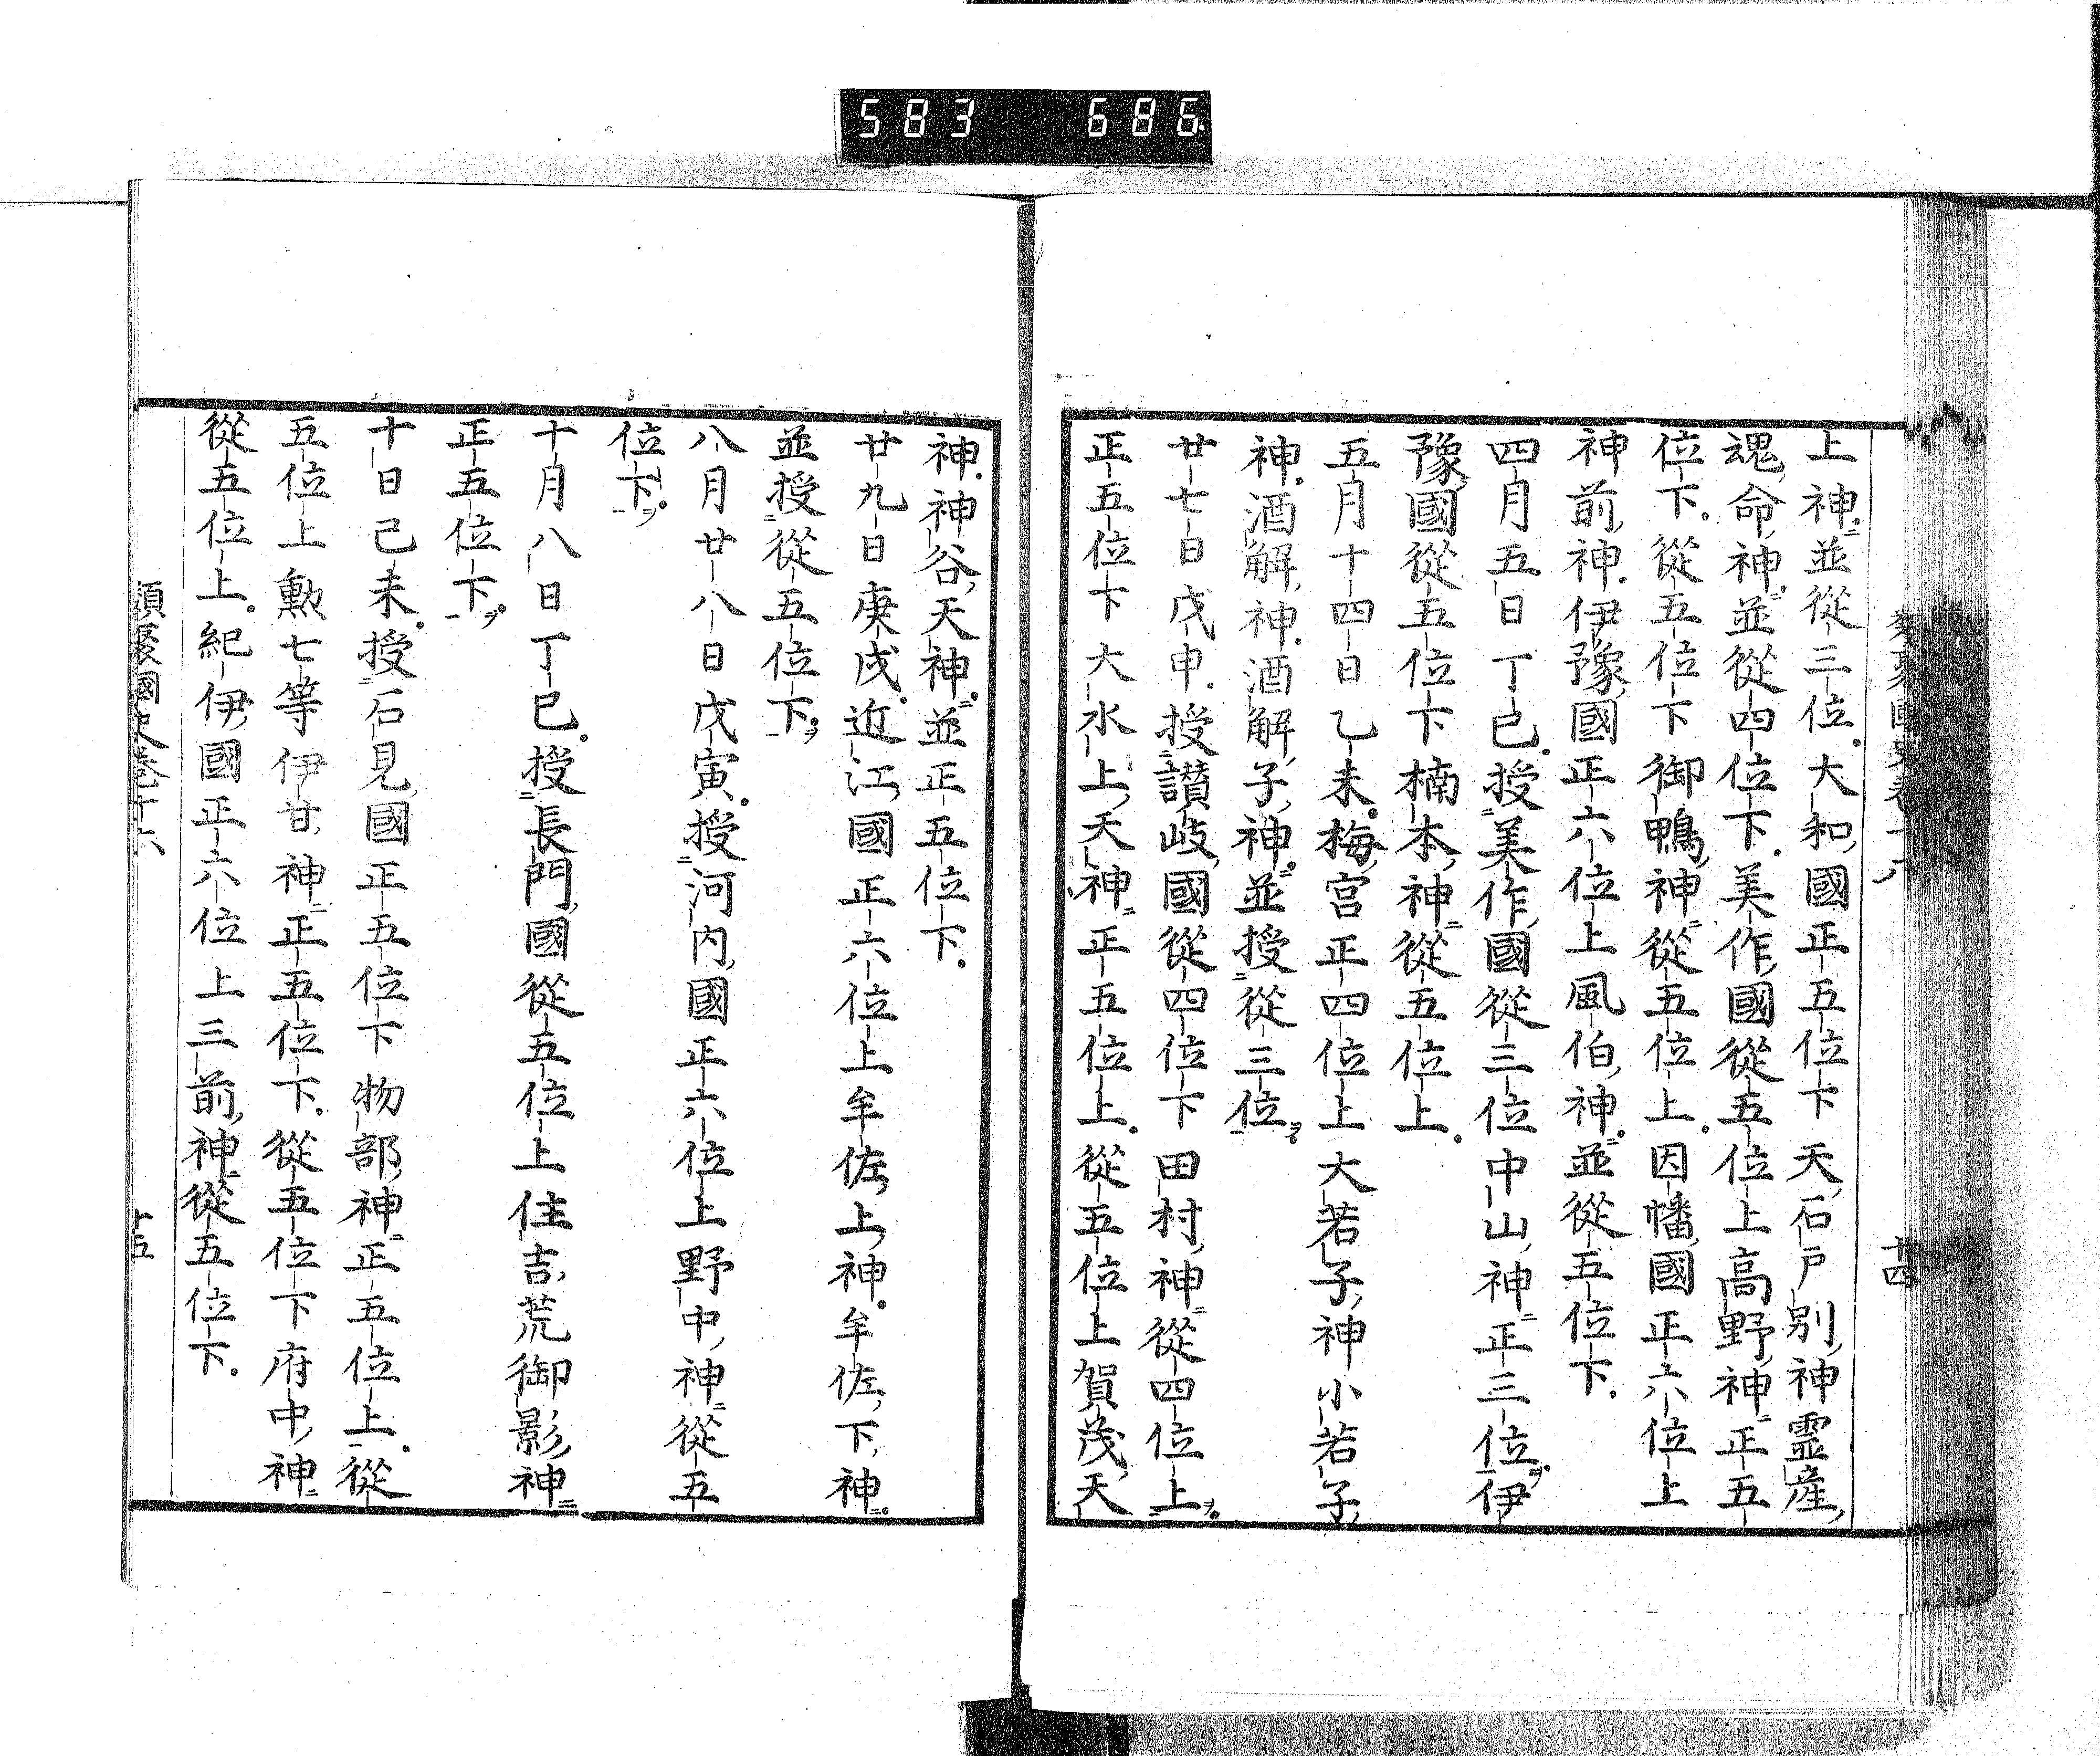 583 686
上神並從三位大和國正五位下天石戸別神霊産
魂命神並從四位下美作國從五位上高野神正五
位下從五位下御鴨神從五位上因幡國正六位上
神前神伊豫國正六位上風伯神並從五位下
四月五日丁巳授美作國從三位中山神正三位伊
豫國從五位下楠本神從五位上
五月十四日乙未梅宮正四位上大若子神小若子
神酒解神酒解子神並授從三位
廿七日戊申授讃岐國從四位下田村神從四位上
正五位下大水上天神正五位上從五位上賀茂天
十四
神神谷天神並正五位下
廿九日庚戌近江國正六位上牟佐上神牟佐下神
並授從五位下
八月廿八日戊寅授河内國正六位上野中神從五
位下
十月八日丁巳授長門國從五位上住吉荒御影神
正五位下
十日己未授石見國正五位下物部神正五位上從
五位上勲七等伊甘神正五位下從五位下府中神
從五位上紀伊國正六位上三前神從五位下
類聚國史巻十六
十五